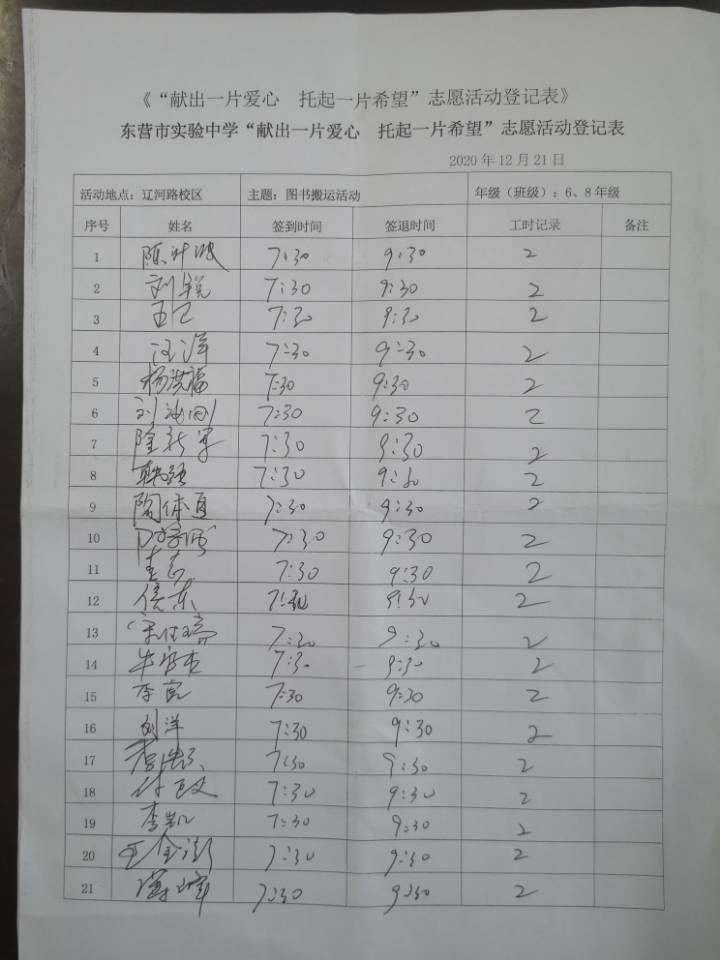 《“献出一片爱心 托起一片希望”志愿活动登记表》
东营市实验中学“献出一片爱心 托起一片希望”志愿活动登记表
2020 年 12 月 21 日
活动地点：辽河路校区 主题：图书搬运活动 年级（班级）：6、8 年级
序号 姓名 签到时间 签退时间 工时记录 备注
1 7:30 9:30 2
2 刘锐 7:30 9:30 2
3 7:30 9:30 2
4 汪洋 7:30 9:30 2
5 杨洪福 7:30 9:30 2
6 7:30 9:30 2
7 隆新军 7:30 9:30 2
8 7:30 9:30 2
9 7:30 9:30 2
10 7:30 9:30 2
11 7:30 9:30 2
12 侯东 7:30 9:30 2
13 7:30 9:30 2
14 7:30 9:30 2
15 7:30 9:30 2
16 刘洋 7:30 9:30 2
17 7:30 9:30 2
18 7:30 9:30 2
19 李凯 7:30 9:30 2
20 7:30 9:30 2
21 7:30 9:30 2